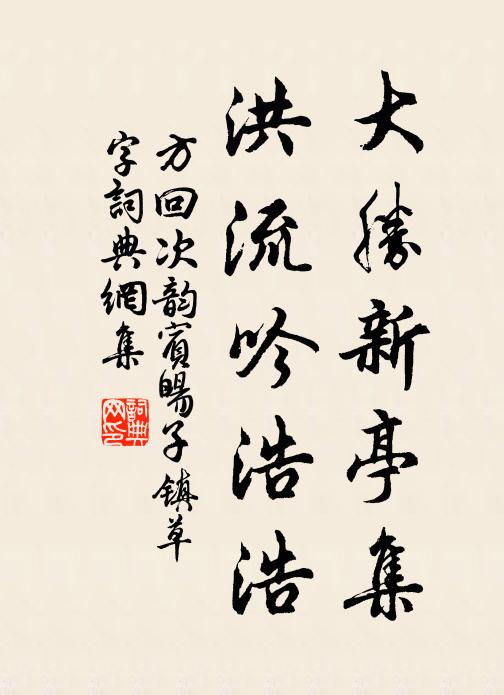 大勝新亭集
洪流吟浩浩
方回次韵賓暘子鎮草
字詞典網集
詞典
网印